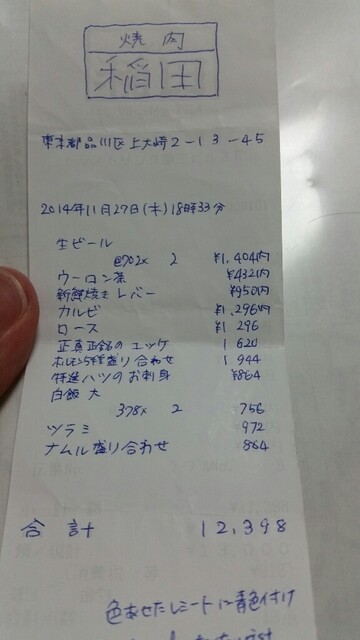 焼肉
稲田
東京都品川区上大崎2-13-45
2014年11月27日(木)18時33分
生ビール
@702x 2 ¥1,404内
ウーロン茶 ¥432内
新鮮焼きレバー ¥950内
カルビ ¥1,296内
ロース ¥1 296
正真正銘のユッケ 1 620
ホルモン5種盛り合わせ 1 944
特選ハツのお刺身 ¥864
白飯 大
378x 2 756
ツラミ 972
ナムル盛り合わせ 864
合計 12,398
色あせたレシートに青色付け